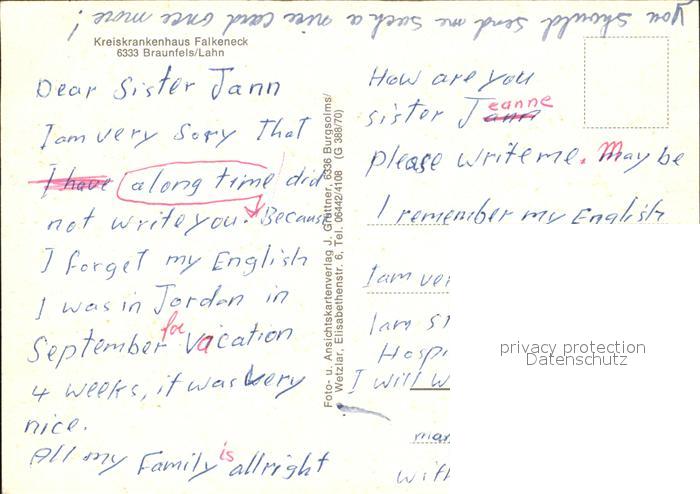 you should send me such a nice card once more!
Kreiskrankenhaus Falkeneck
6333 Braunfels/Lahn
Dear Sister Jann
I am very Sory That
I have a long time did
not write you. Because
I forget my English
I was in Jordan in
September for Vacation
4 weeks, it was very
nice.
All my Family is allright
Foto- u. Ansichtskartenverlag J. Grüttner, 6336 Burgsolms/
Wetzlar, Elisabethenstr. 6, Tel. 06442/4108 (G 388/70)
How are you
sister Jeanne
please write me. May be
I remember my English
I am
I am
I will
privacy protection
Datenschutz